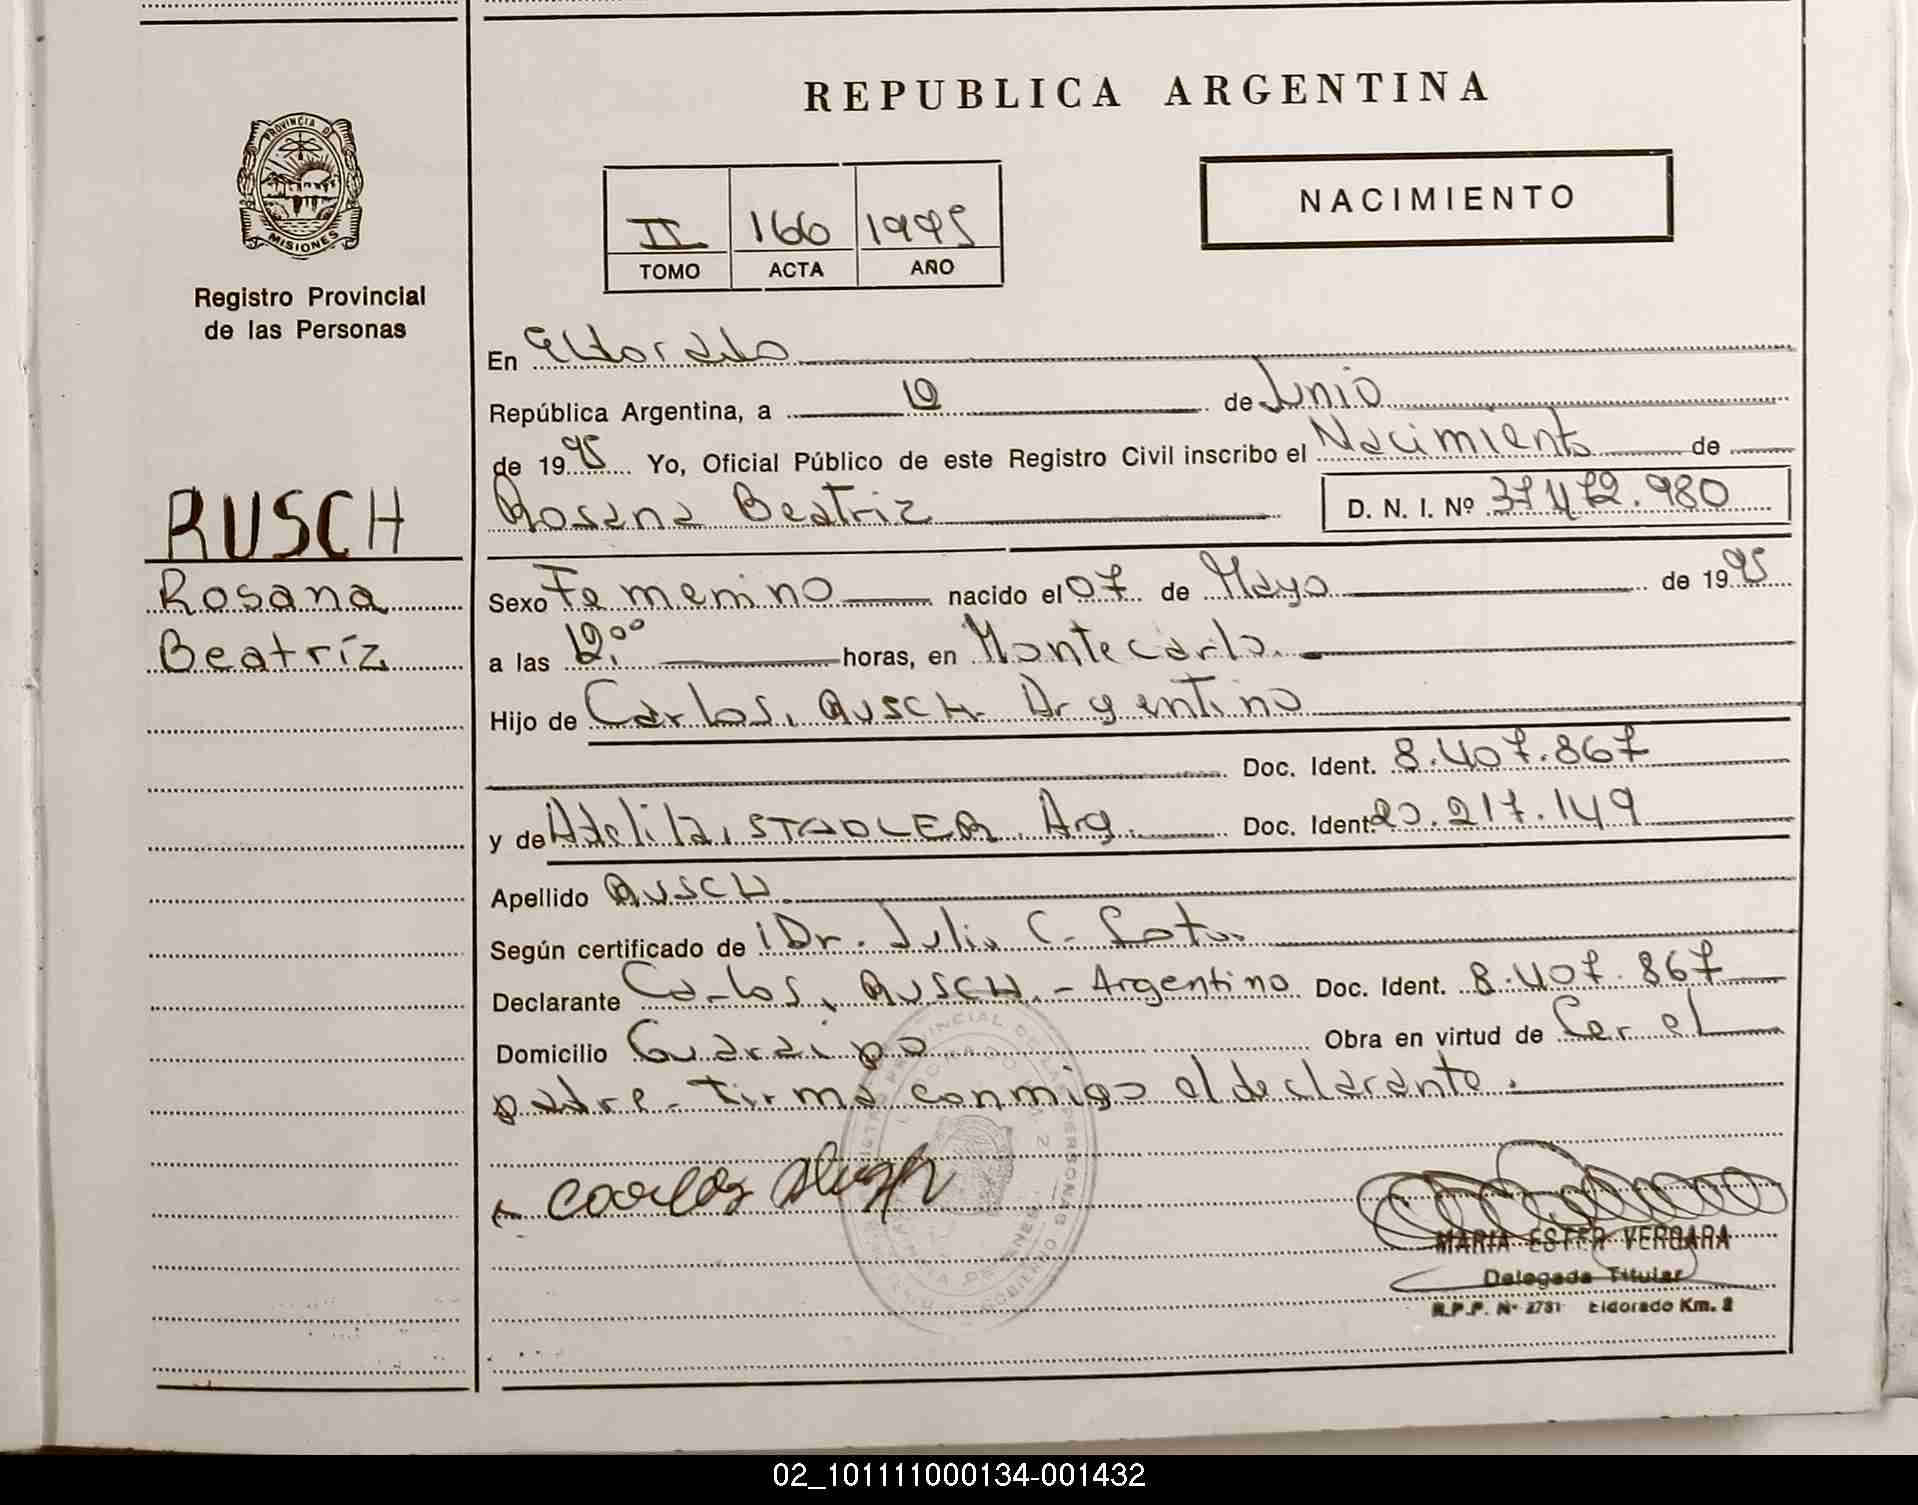 REPUBLICA ARGENTINA
PROVINCIA DE
MISIONES
Registro Provincial
de las Personas
II 166 1995
TOMO ACTA AÑO
NACIMIENTO
En Eldorado
República Argentina, a 12 de Junio
de 1995 Yo, Oficial Público de este Registro Civil inscribo el Nacimiento de
RUSCH
Rosana
Beatríz
Rosana Beatriz D. N. I. Nº 37.472.980
Sexo Femenino nacido el 07 de Mayo de 1995
a las 12.00 horas, en Montecarlo.
Hijo de Carlos, RUSCH. Argentino
Doc. Ident. 8.407.867
y de Adelita, STADLER. Arg. Doc. Ident. 20.217.149
Apellido RUSCH.
Según certificado de Dr. Julio C.
Declarante Carlos, RUSCH. - Argentino Doc. Ident. 8.407.867
Domicilio Guaraipo Obra en virtud de Ser el
padre - firma conmigo el declarante.
Carlos Rusch
MARIA ESTER VERGARA
Delegada Titular
R.P.P. Nº 2781 Eldorado Km. 2
02_101111000134-001432